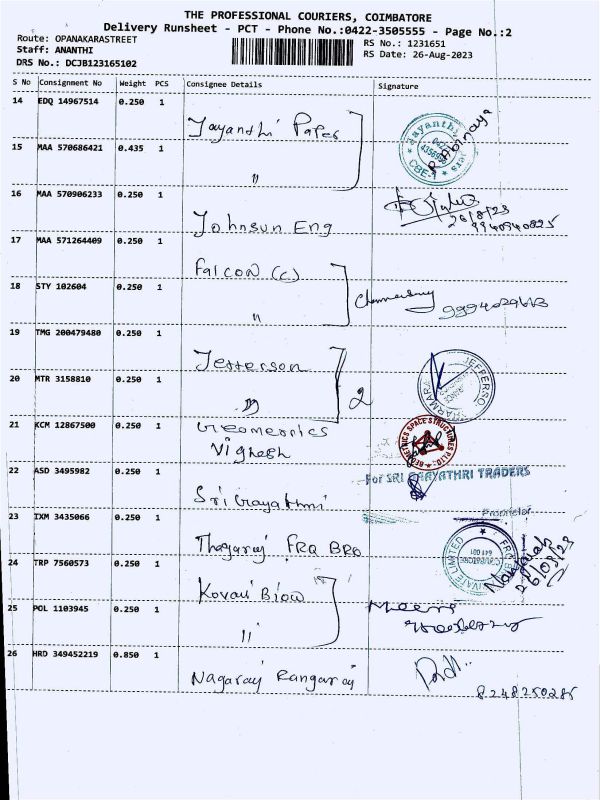 THE PROFESSIONAL COURIERS, COIMBATORE
Delivery Runsheet - PCT - Phone No.:0422-3505555 - Page No.:2
Route: OPANAKARASTREET
RS No.: 1231651
Staff: ANANTHI
RS Date: 26-Aug-2023
DRS No.: DCJB123165102
S No Consignment No Weight PCS Consignee Details Signature
14 EDQ 14967514 0.250 1 Jayanthi Paper
15 MAA 570686421 0.435 1 "
16 MAA 570906233 0.250 1 Johnsun Eng
26/8/23
9940940825
17 MAA 571264409 0.250 1 Falcon (c)
18 STY 102604 0.250 1 "
19 TMG 200479480 0.250 1 Jefferson
20 MTR 3158810 0.250 1 " 2
21 KCM 12867500 0.250 1 Geometrics
Vignesh
GEOMETRICS SPACE STRUCTURES P LTD
22 ASD 3495982 0.250 1 Sri Gayathri
For SRI GAAYATHRI TRADERS
Proprietor
23 IXM 3435066 0.250 1 Thagaraj FRQ BRO
24 TRP 7560573 0.250 1 Kovai Biow
26/08/23
25 POL 1103945 0.250 1 "
26 HRD 349452219 0.850 1 Nagaraj Rangaraj
8248250285